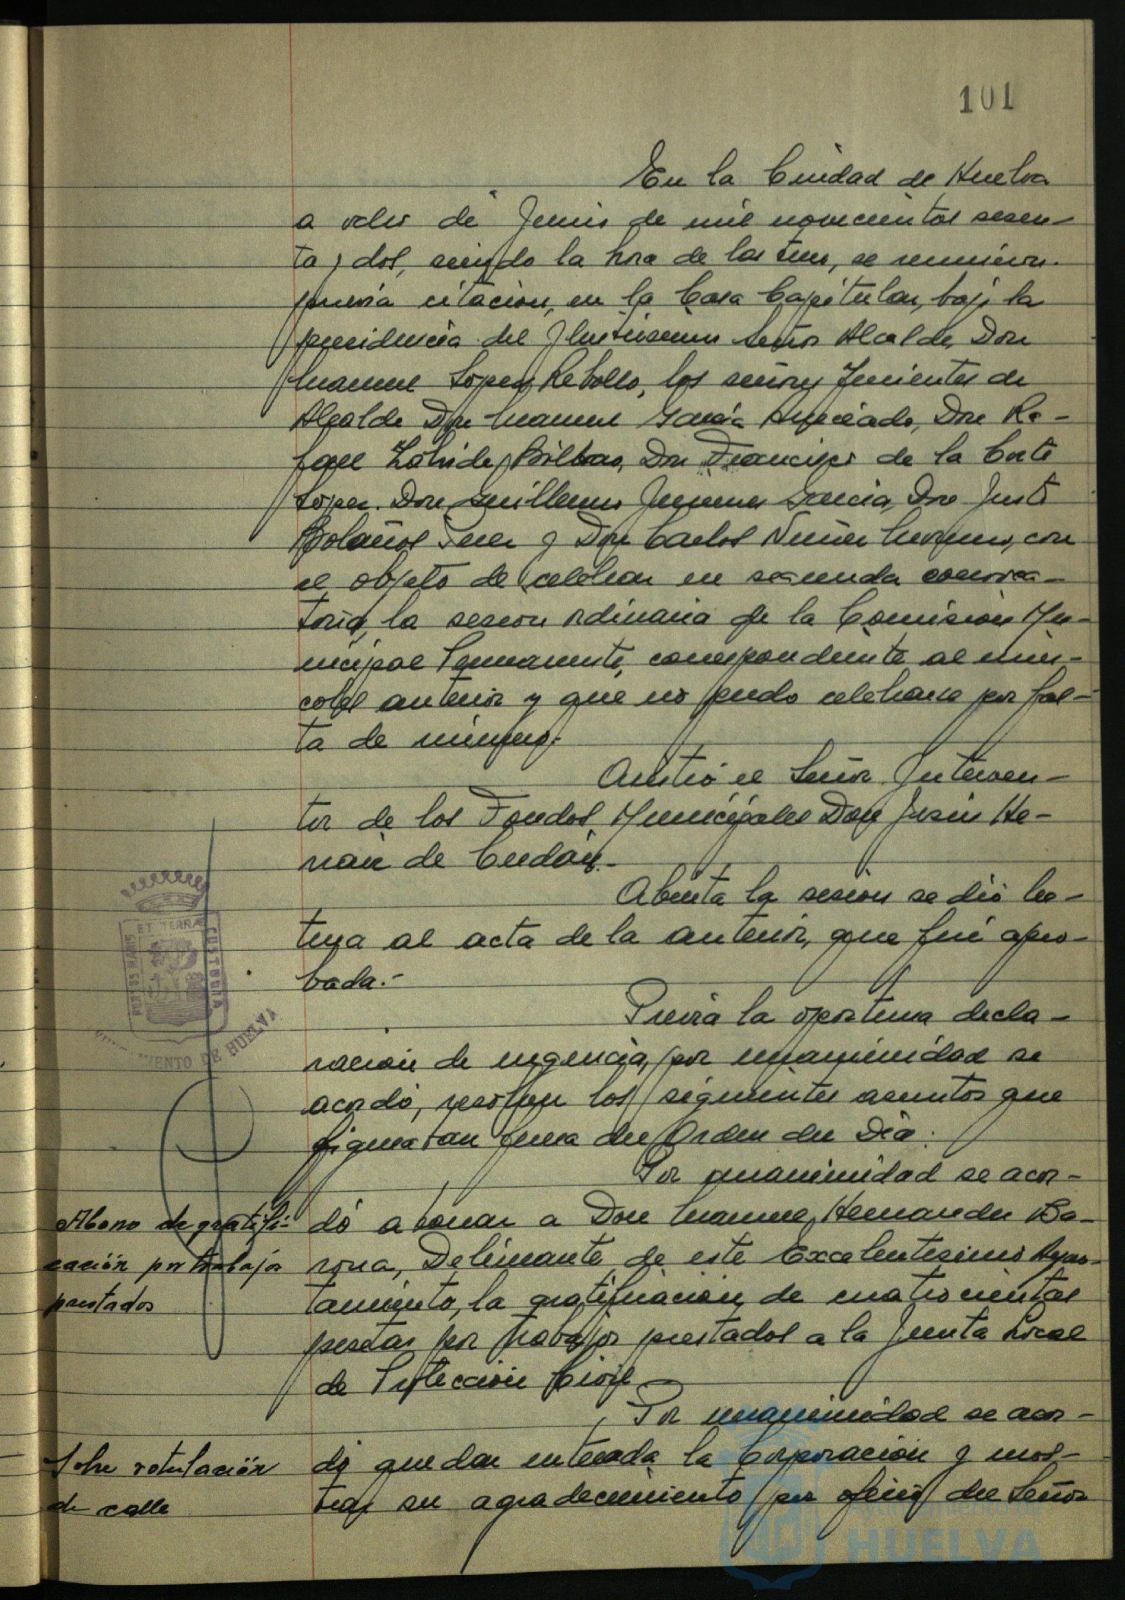 101
En la Ciudad de Huelva
a ocho de Junio de mil novecientos sesen-
ta y dos, siendo la hora de las, se reunieron
previa citación, en la Casa Capitular, bajo la
presidencia del Ilustrísimo Señor Alcalde, Don
Manuel López Rebollo, los señores Tenientes de
Alcalde Don Manuel García, Don Ra-
fael Bilbao, Don Francisco de la Corte
López. Don Guillermo Jimenez García, Don Justo
Bolaños y Don Carlos Núñez Moreno, con
el objeto de celebrar en segunda convoca-
toria, la sesion ordinaria de la Comisión Mu-
nicipal Permanente, correspondiente al miér-
coles anterior y que no pudo celebrarse por fal-
ta de número.-
Asistió el Señor Interven-
tor de los Fondos Municipales Don He-
nan de
Abierta la sesion se dió lec-
tura al acta de la anterior, que fué apro-
bada.-
Previa la oportuna decla-
racion de urgencia, por unanimidad se
acordó, resolver los siguientes asuntos que
figuraban fuera del Orden del Dia:
Por unanimidad se acor-
Abono de gratifi-
cación por trabajos
prestados
dó abonar a Don Manuel Hernandez Ba-
rona, Delineante de este Excelentisimo Ayun-
tamiento, la gratificacion de cuatrocientas
pesetas por trabajos prestados a la Junta Local
de Protección Civil.-
Por unanimidad se acor-
Sobre rotulación
de calle
dó quedar enterada la Corporación y mos-
trar su agradecimiento por oficio del Señor
ET TERRAE
CUSTODIA
PORTUS MARIS
AYUNTAMIENTO DE HUELVA
HUELVA